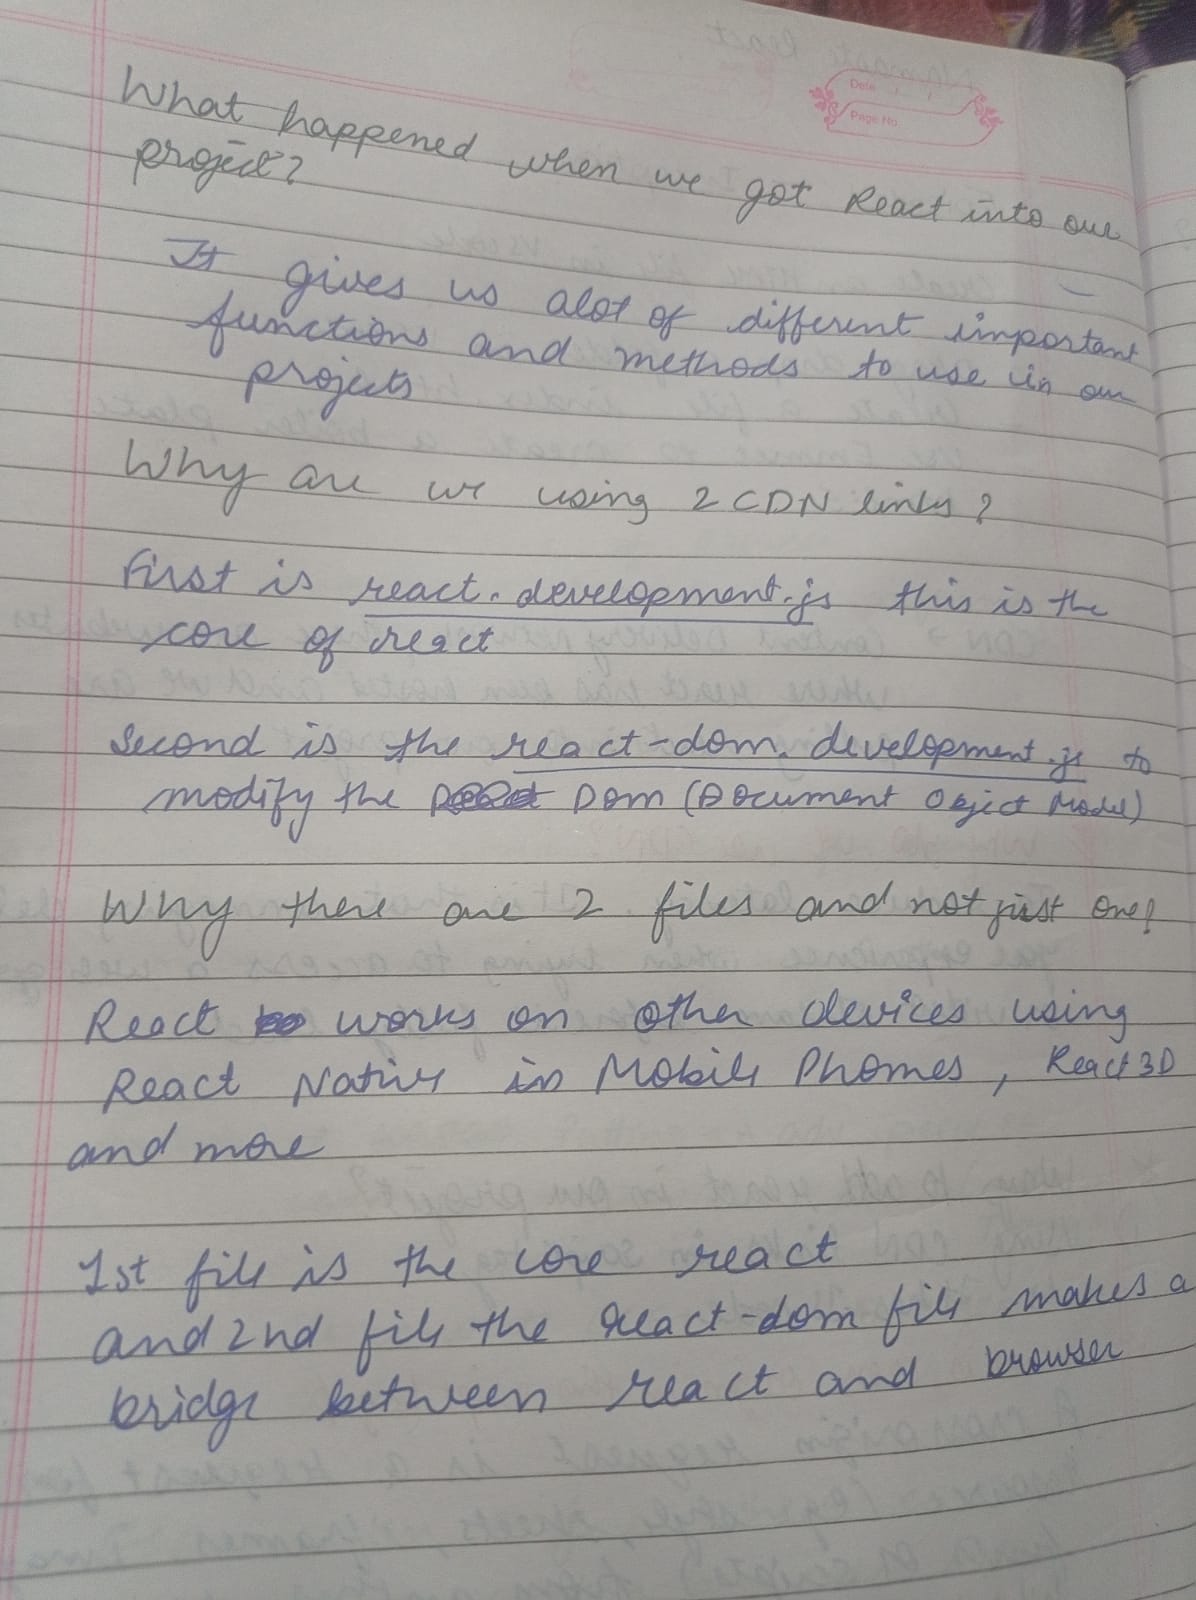 Date
Page No.
What happened when we got React into our
project?
It gives us alot of different important
functions and methods to use in our
projects
Why are we using 2 CDN links?
First is react.development.js this is the
core of react
Second is the react-dom.development.js to
modify the DOM (Document Object Model)
Why there are 2 files and not just one?
React works on other devices using
React Native in Mobile Phones, React 3D
and more
1st file is the core react
and 2nd file the react-dom file makes a
bridge between react and browser